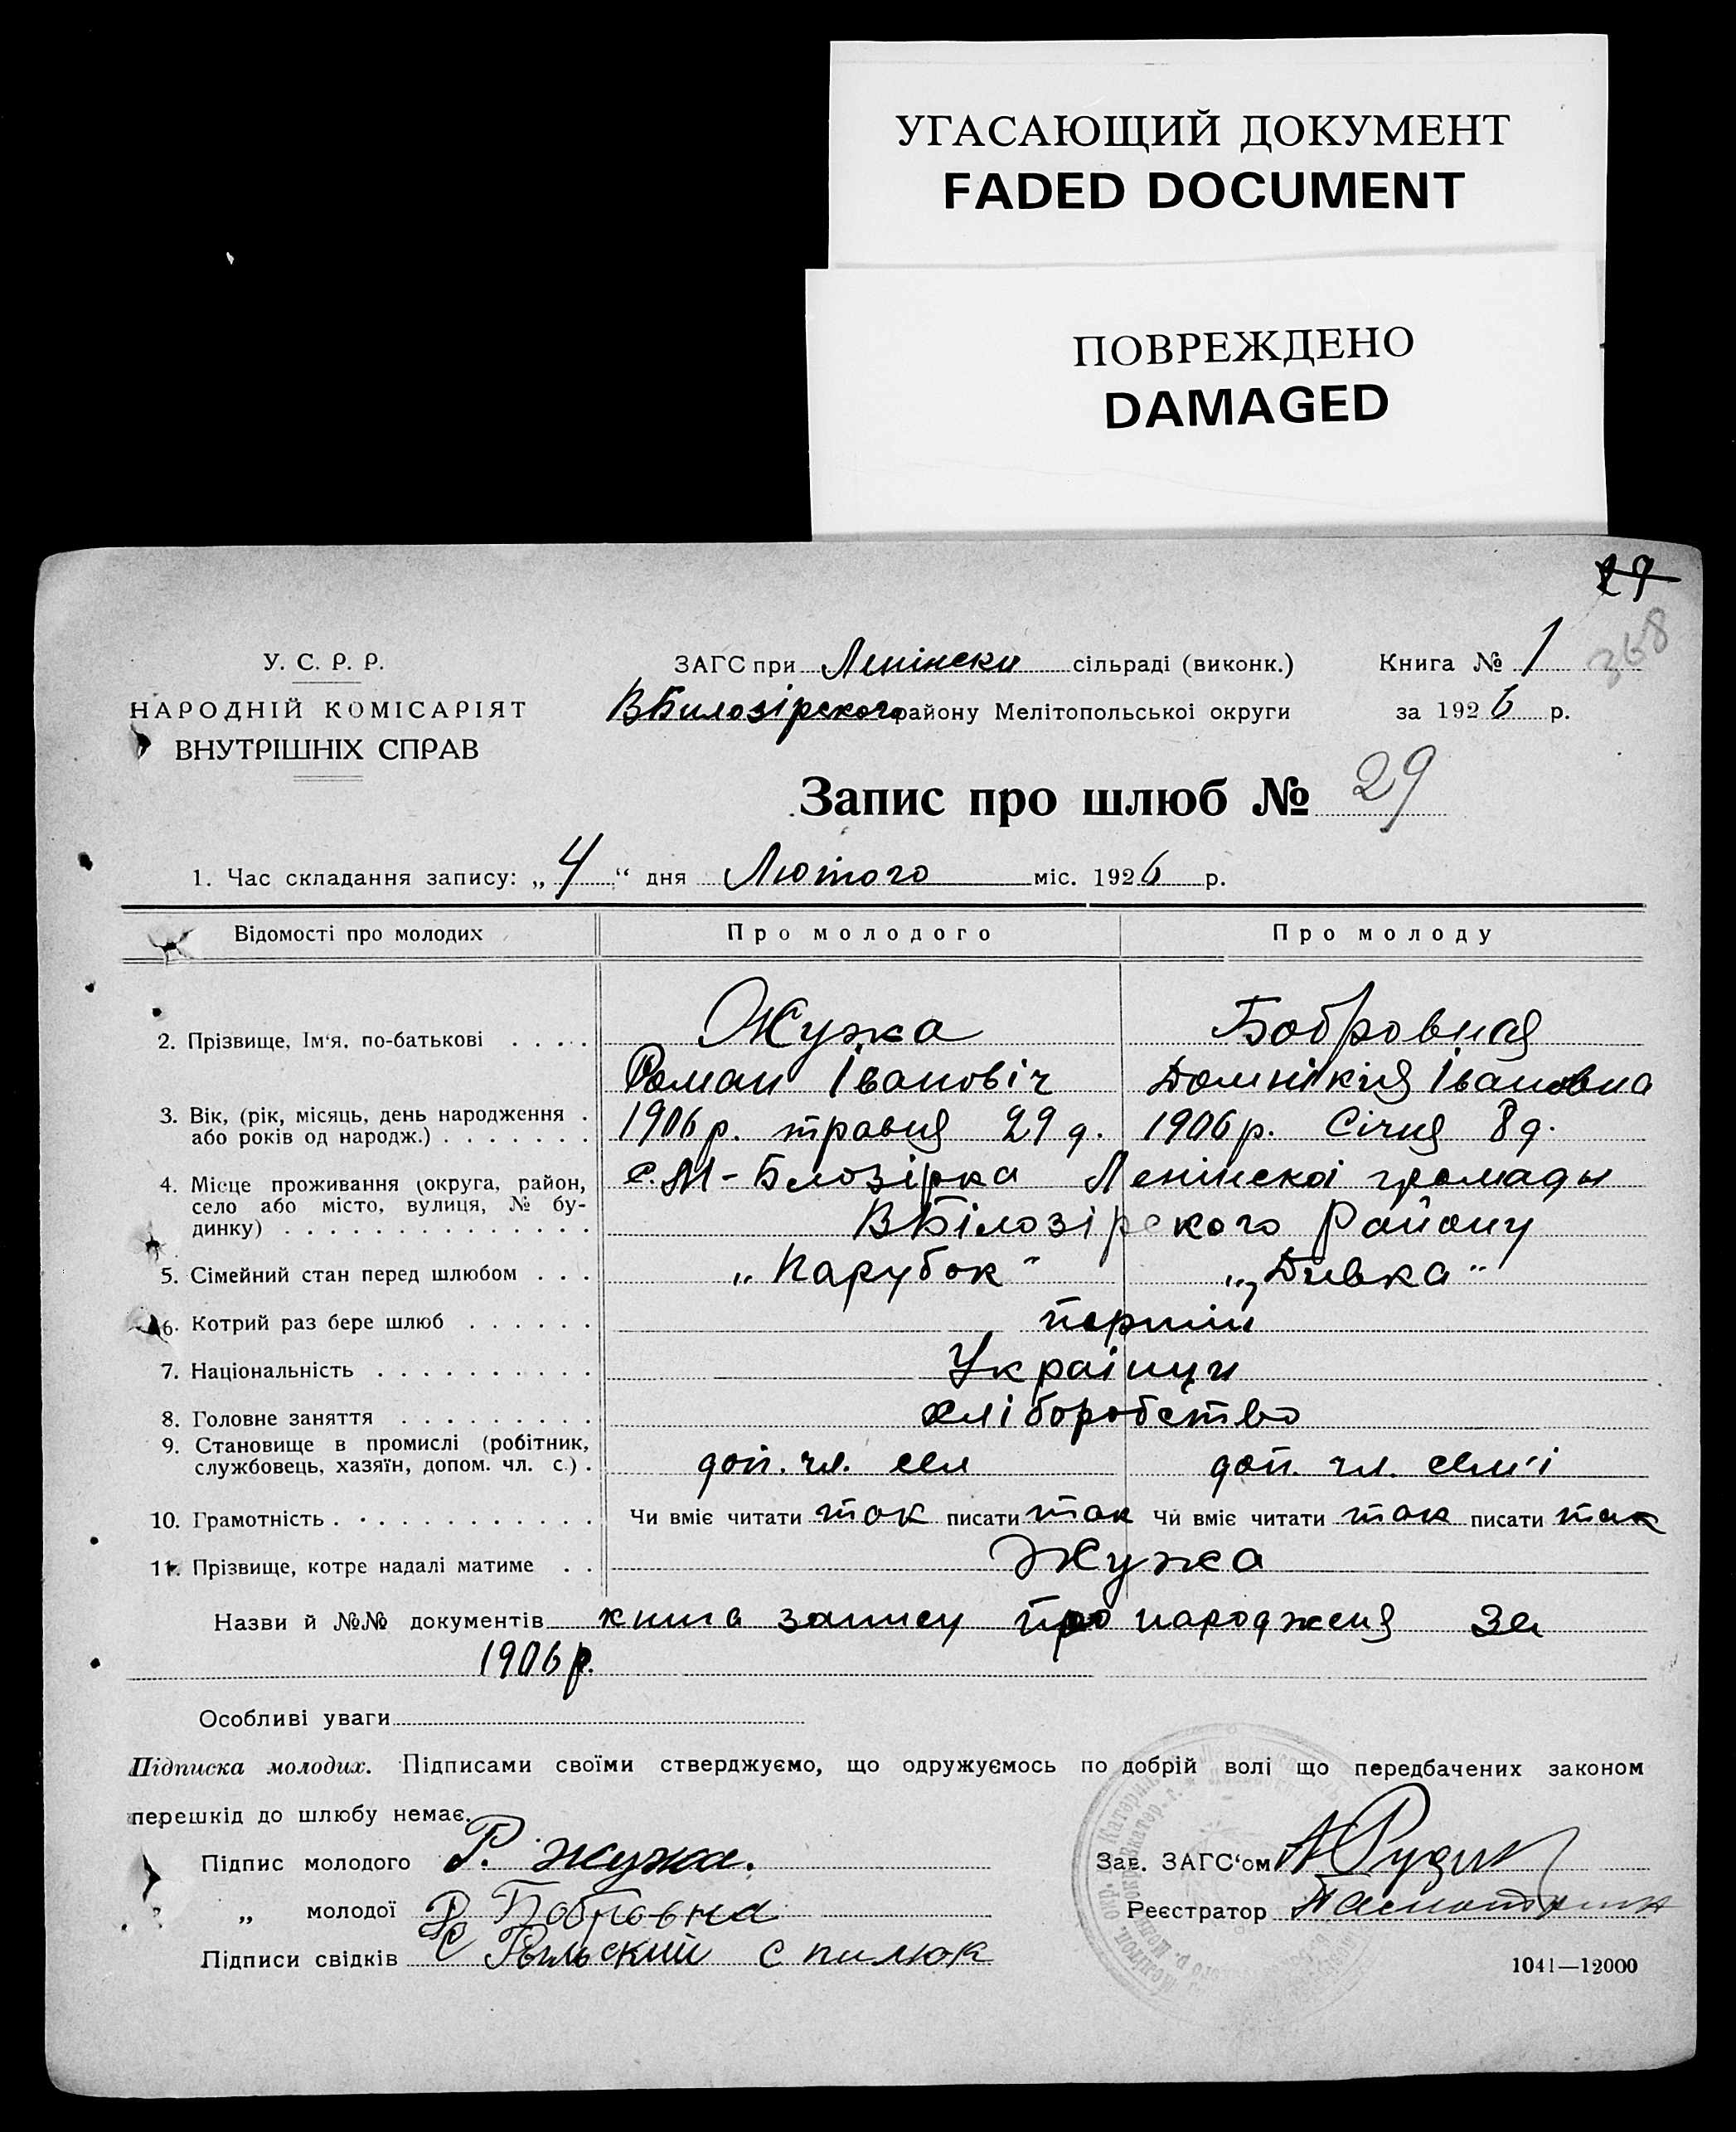 УГАСАЮЩИЙ ДОКУМЕНТ
FADED DOCUMENT
ПОВРЕЖДЕНО
DAMAGED
29
368
У. С. Р. Р.
НАРОДНІЙ КОМІСАРІЯТ
ВНУТРІШНІХ СПРАВ
ЗАГС при Ленінски сільраді (виконк.)
ВБилозірского району Мелітопольської округи
Книга № 1
за 1926 р.
Запис про шлюб № 29
1. Час складання запису: „4“ дня Лютого міс. 1926 р.
Відомості про молодих Про молодого Про молоду
2. Прізвище, Ім‘я, по-батькові . . . . Жужа Бобровная
Роман Івановіч Домнікія Івановна
3. Вік, (рік, місяць, день народження .
або років од народж.) . . . . . . . 1906 р. травня 29 д. 1906 р. Січня 8 д.
4. Місце проживання (округа, район,
село або місто, вулиця, № бу-
динку) . . . . . . . . . . . . . .
с. М-Білозірка Ленінскоі громады
ВБілозірского Району
5. Сімейний стан перед шлюбом . . . „Парубок“ „Дивка“
6. Котрий раз бере шлюб . . . . . . перший
7. Національність . . . . . . . . . . Украінци
8. Головне заняття . . . . . . . . . хліборобство
9. Становище в промислі (робітник,
службовець, хазяїн, допом. чл. с.) . доп. чл. сем доп. чл. сем'і
10. Грамотність . . . . . . . . . . . . Чи вміє читати так писати так Чи вміє читати так писати так
11. Прізвище, котре надалі матиме . . Жужа
Назви й №№ документів книга запису про народженя за
1906 р.
Особливі уваги
Підписка молодих. Підписами своїми стверджуємо, що одружуємось по добрій волі що передбачених законом
перешкід до шлюбу немає.
Підпис молодого Р. Жужа.
„ молодої Бобровна
Підписи свідків
Зав. ЗАГС‘ом
Реєстратор
1041—12000